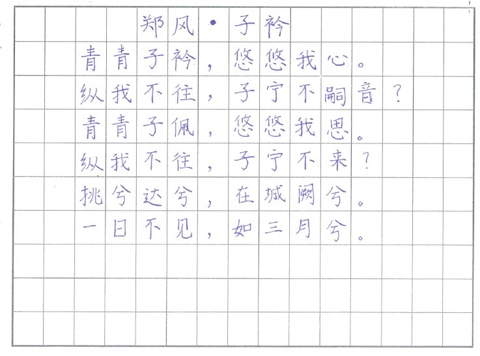 郑风·子衿
青青子衿，悠悠我心。
纵我不往，子宁不嗣音？
青青子佩，悠悠我思。
纵我不往，子宁不来？
挑兮达兮，在城阙兮。
一日不见，如三月兮。